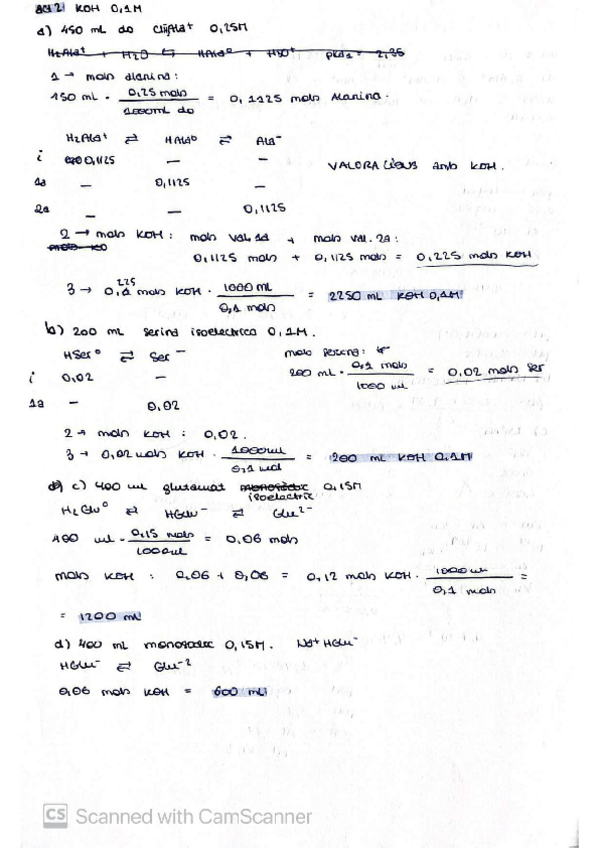 ACT 2. KOH 0,1M
a) 450 mL de ClH2Ala+ 0,25M
H2Ala+ + H2O ⇆ HAla0 + H3O+ pKa1 = 2,35
1 → mols alanina:
450 mL · 0,25 mols / 1000mL do = 0,1125 mols Alanina.
H2Ala+ ⇄ HAla0 ⇄ Ala-
i 0,1125 — — VALORACIONS amb KOH.
1a — 0,1125 —
2a — — 0,1125
2 → mols KOH: mols val. 1a + mols val. 2a:
0,1125 mols + 0,1125 mols = 0,225 mols KOH
3 → 0,225 mols KOH · 1000 mL / 0,1 mols = 2250 mL KOH 0,1M
b) 200 mL serina isoelectrica 0,1M.
HSer0 ⇄ Ser- mols serina:
i 0,02 — 200 mL · 0,1 mols / 1000 mL = 0,02 mols Ser
1a — 0,02
2 → mols KOH: 0,02.
3 → 0,02 mols KOH · 1000mL / 0,1 mol = 200 mL KOH 0,1M
c) 400 mL glutamat isoelectric 0,15M
H2Glu0 ⇄ HGlu- ⇄ Glu2-
400 mL · 0,15 mols / 1000mL = 0,06 mols
mols KOH: 0,06 + 0,06 = 0,12 mols KOH · 1000 mL / 0,1 mols =
= 1200 mL
d) 400 mL monosodic 0,15M. Na+ HGlu-
HGlu- ⇄ Glu-2
0,06 mols KOH = 600 mL
CS Scanned with CamScanner